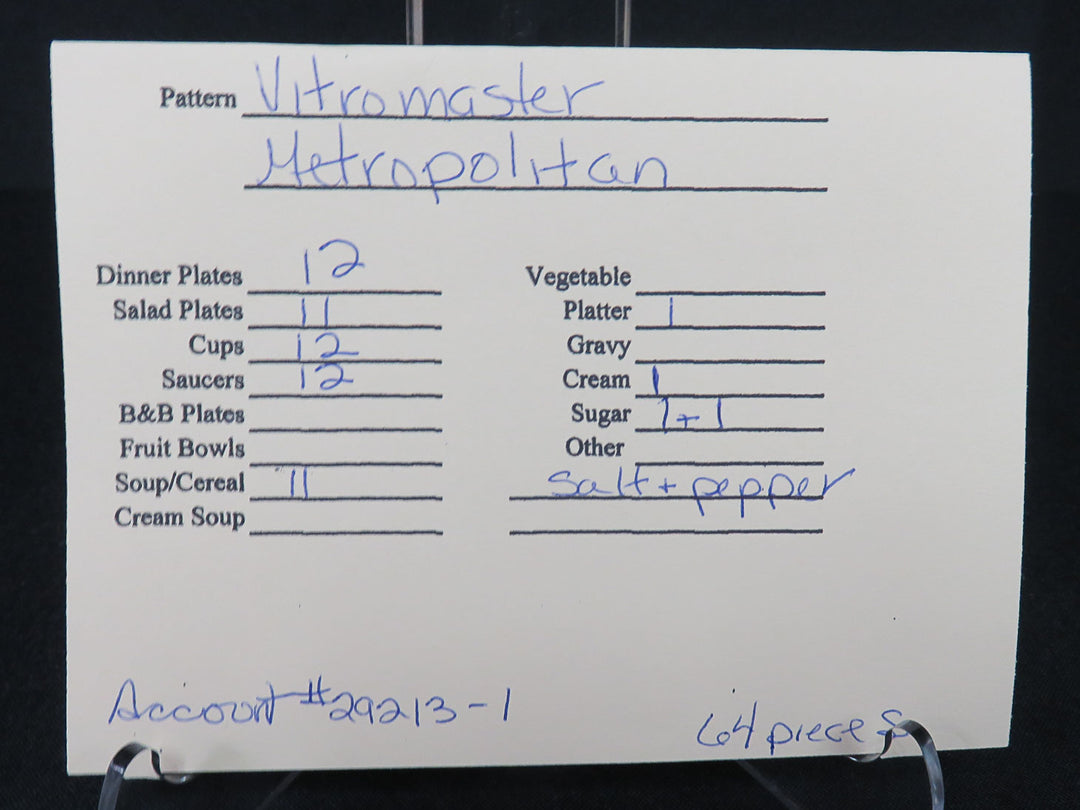 Pattern Vitromaster
Metropolitan
Dinner Plates 12
Salad Plates 11
Cups 12
Saucers 12
B&B Plates
Fruit Bowls
Soup/Cereal 11
Cream Soup
Vegetable
Platter 1
Gravy
Cream 1
Sugar 1+1
Other
Salt + pepper
Account #29213-1
64 pieces